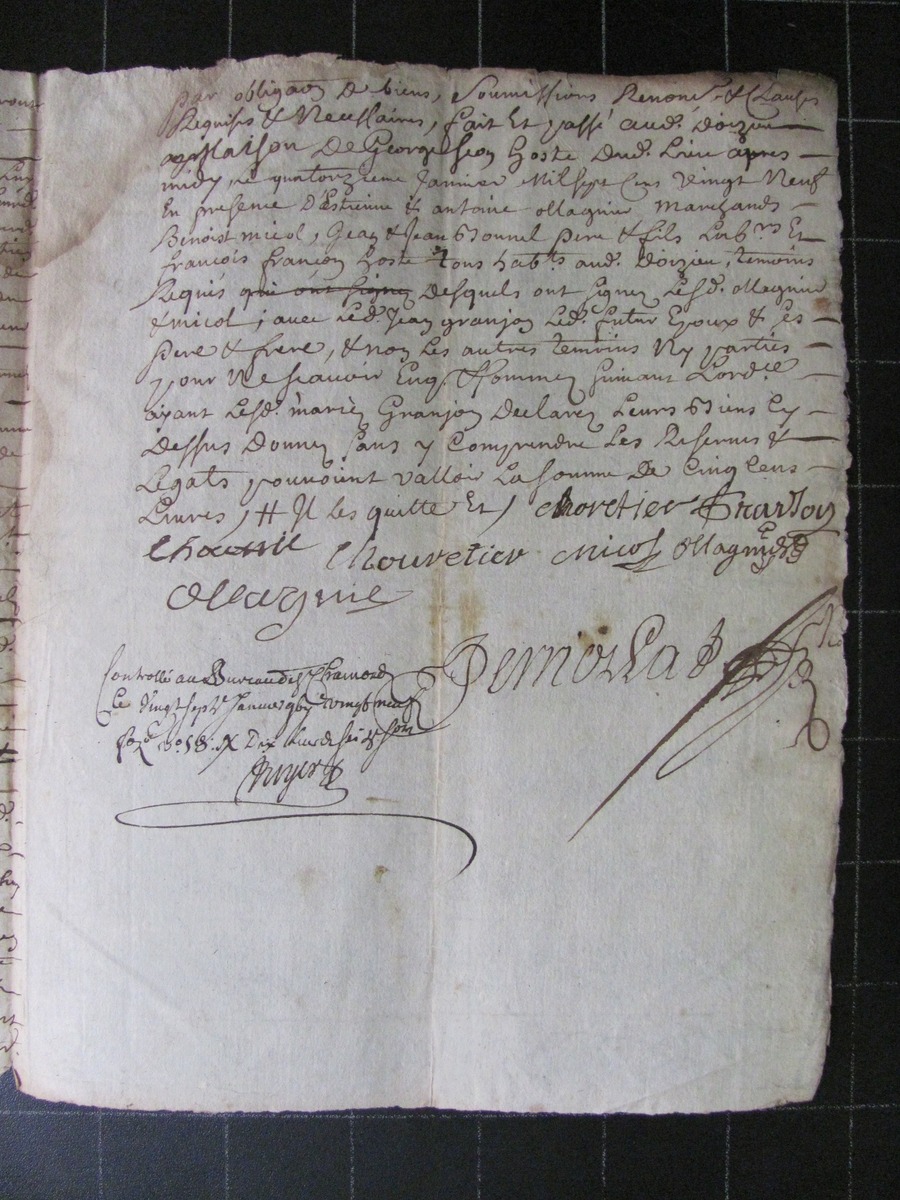 par obligaon de biens, Soumissions Renonc. & Clauses
Requises & Necessaires, fait Et passé aud. doizieu
Maison De George hoste Dud. Lieu apres
midy, ce quatorzieme Janvier Mil sept Cens Vingt Neuf
En presence D'Estienne & antoine Magnin Marchands
Benoist micol, Jean & Jean Bonnel pere & fils Lab.rs Et
francois françon hoste tous hab.ts aud. Doizieu, temoins
Requis qui ont signez Desquels ont signez Lesd. Magnin
& micol, avec Led. Jean granjon Led. futur Epoux & ses
pere & frere, & non Les autres temoins Ny parties
pour Ne scavoir Enq. & sommez suivant Lord.ce
ayant Lesd. mariez Granjon Declarez Leurs Biens Cy
Dessus Donnez sans y Comprendre Les Reserves &
Legats pouvoient valloir La somme De Cinq Cens
Livres, # Il les quitte Et, Choretier Granjon
Chouretier Micol Magnin
Magnin
Controllé au Bureau de St Chamond
Le Vingt sept.e Janvier vingt neuf
fo. Dix